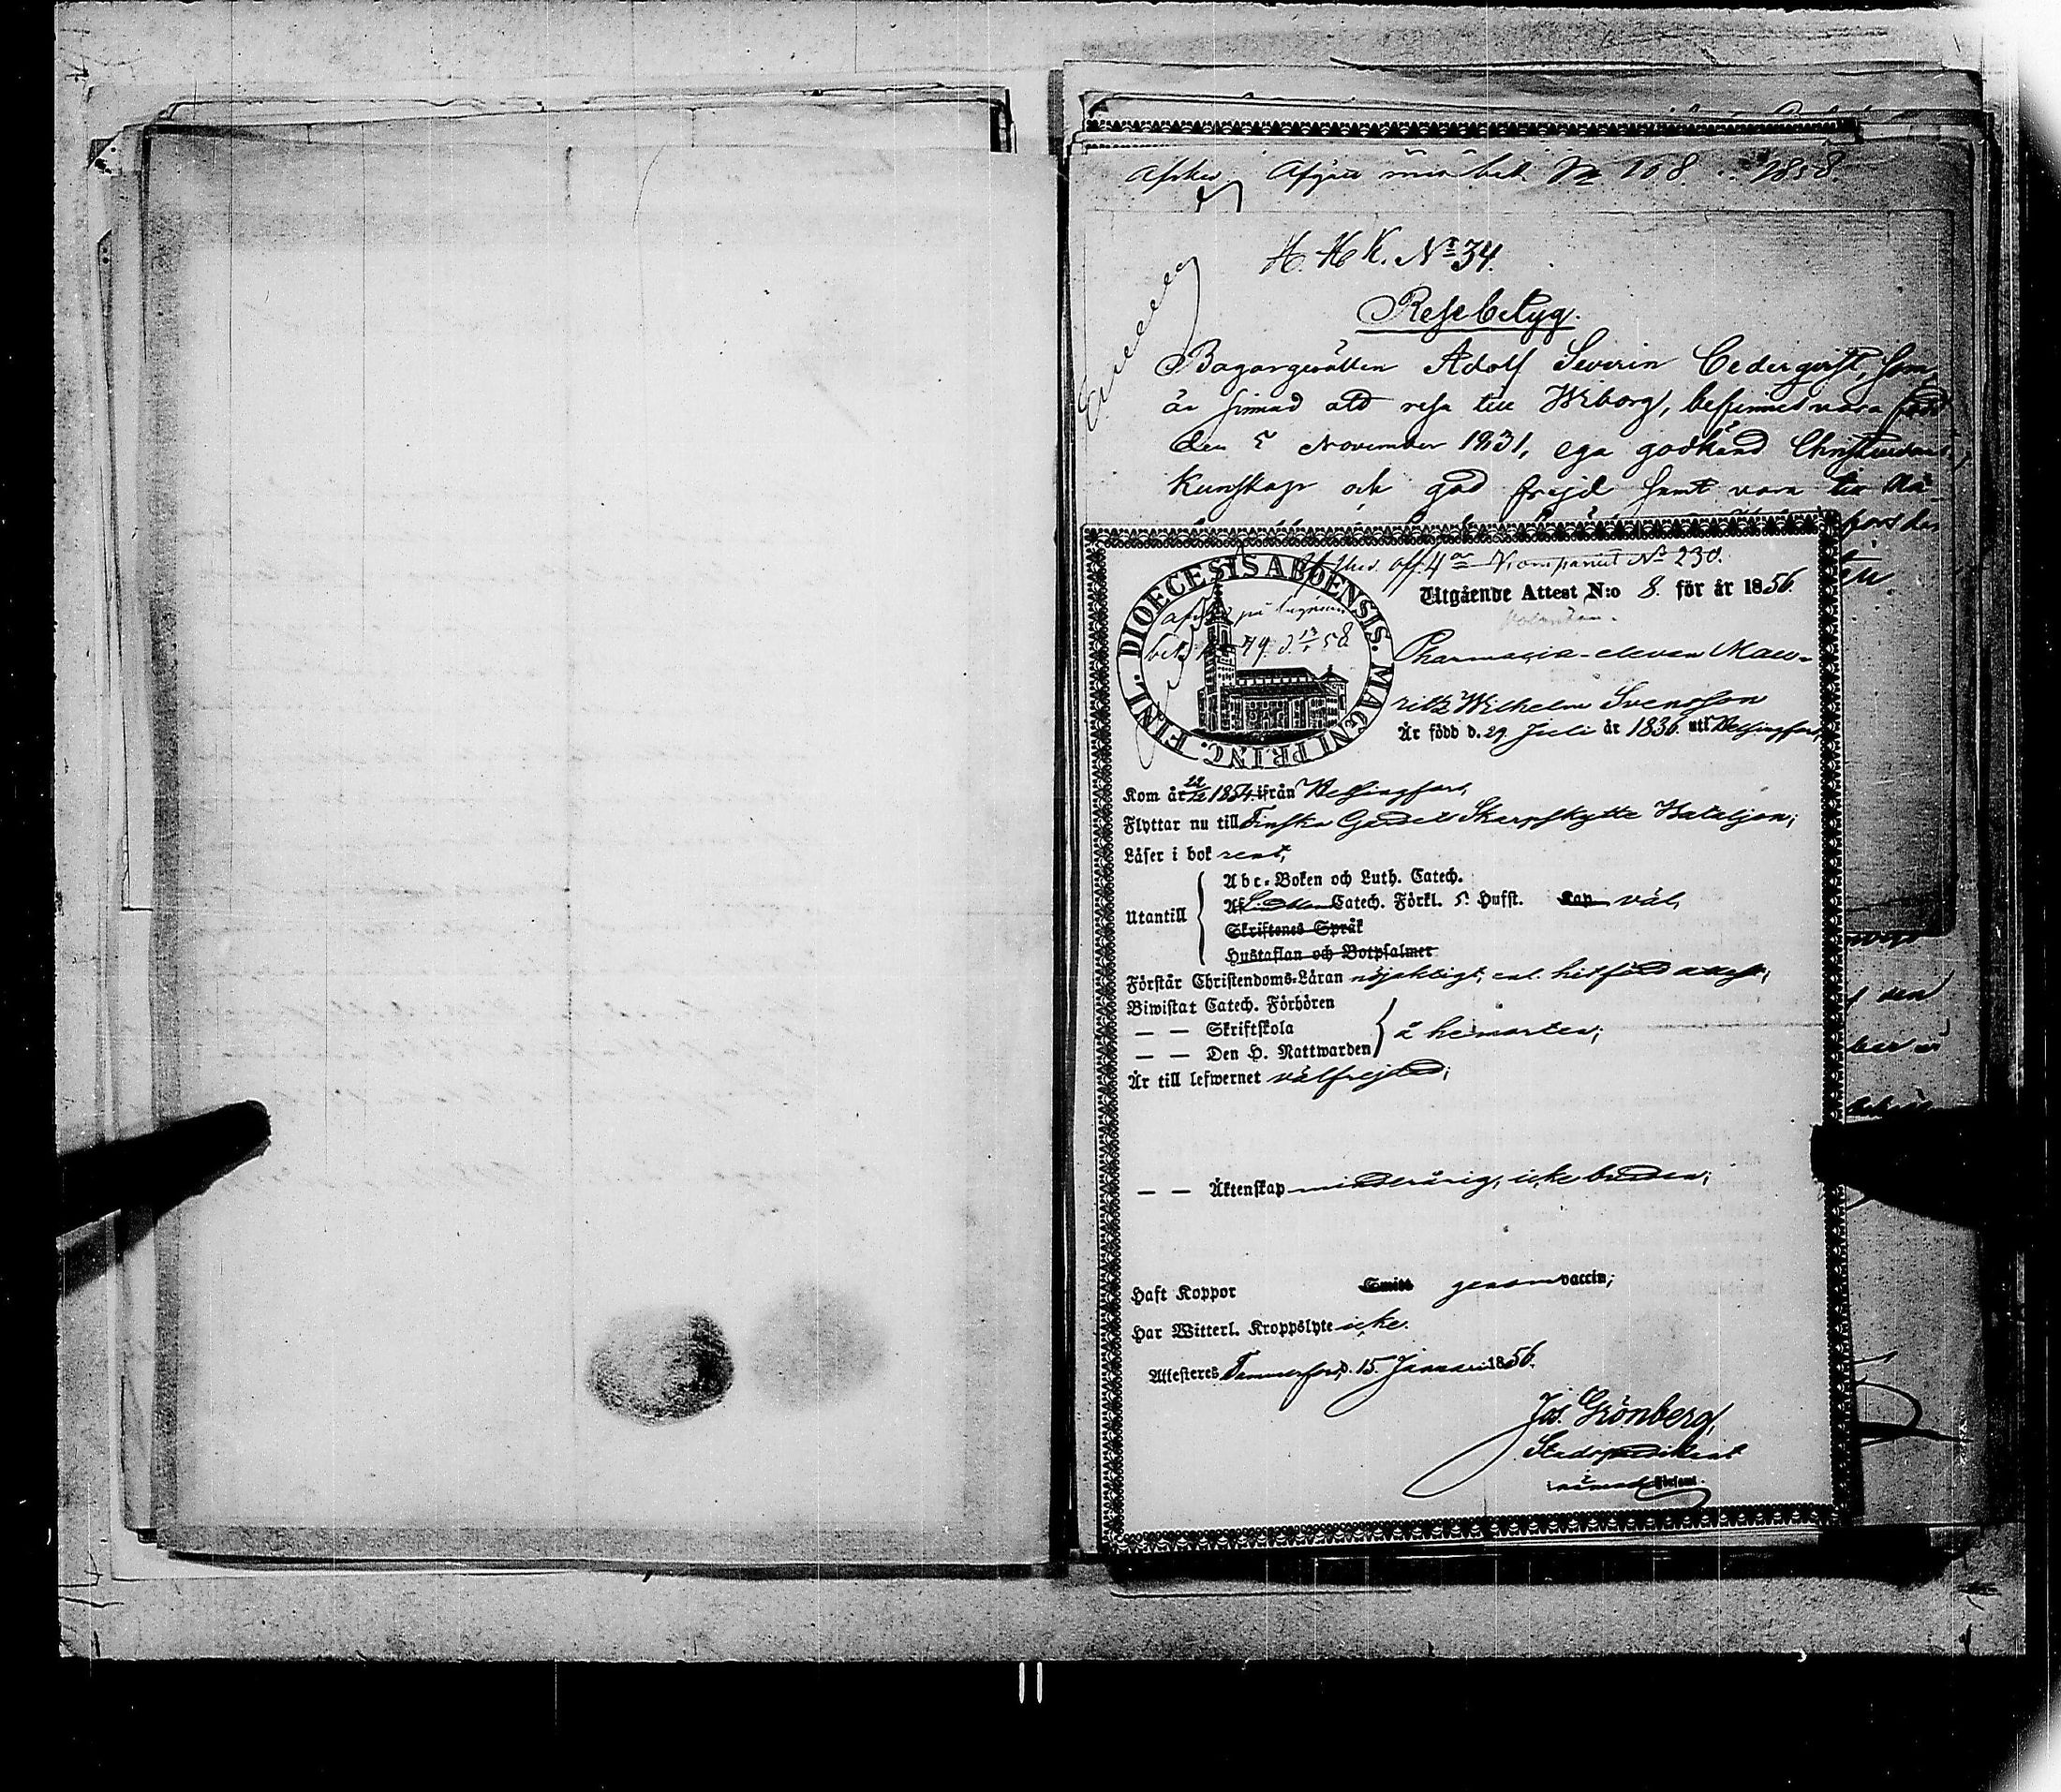 Afsked Afgått med bet. No 168. 1858.
H. H. K. No 34.
Resebetyg.
Bagargesällen Adolf Severin Cederqvist, som
är sinnad att resa till Wiborg, befinnes vara född
den 5 November 1831, ega godkänd Christendoms
kunskap och god frejd samt vara till Na-
fors den
Afsked. off. 4de Kompaniet No 230.
DIOECESIS ABOENSIS. MAGNI PRINC. FINL.
58
Utgående Attest N:o 8. för år 1856.
Pharmacia-eleven Mau-
ritz Wilhelm Svensson
Är född d. 29 Juli år 1836. uti Helsingfors,
Kom år 1854 ifrån Helsingfors,
Flyttar nu till Finska Gardets Skarpskytte Bataljon;
Läser i bok rent,
Utantill
Abc-Boken och Luth. Catech.
Af Catech. Förkl. 5. Hufst. kan väl,
Skriftenes Språk
Hustaflan och Botpsalmer
Förstår Christendoms-Läran nöjaktigt, enl. hitförd attest;
Biwistat Catech. Förhören
— — Skriftskola
— — Den H. Nattwarden
å hemorten;
Är till lefwernet välfrejdad;
— — Äktenskap minderårig, icke bunden;
Haft Koppor Smitt genom vaccin;
Har Witterl. Kroppslyte icke.
Attesteras Tammerfors, d. 15 Januari 1856.
Jos. Grönberg,
Stadspredikant